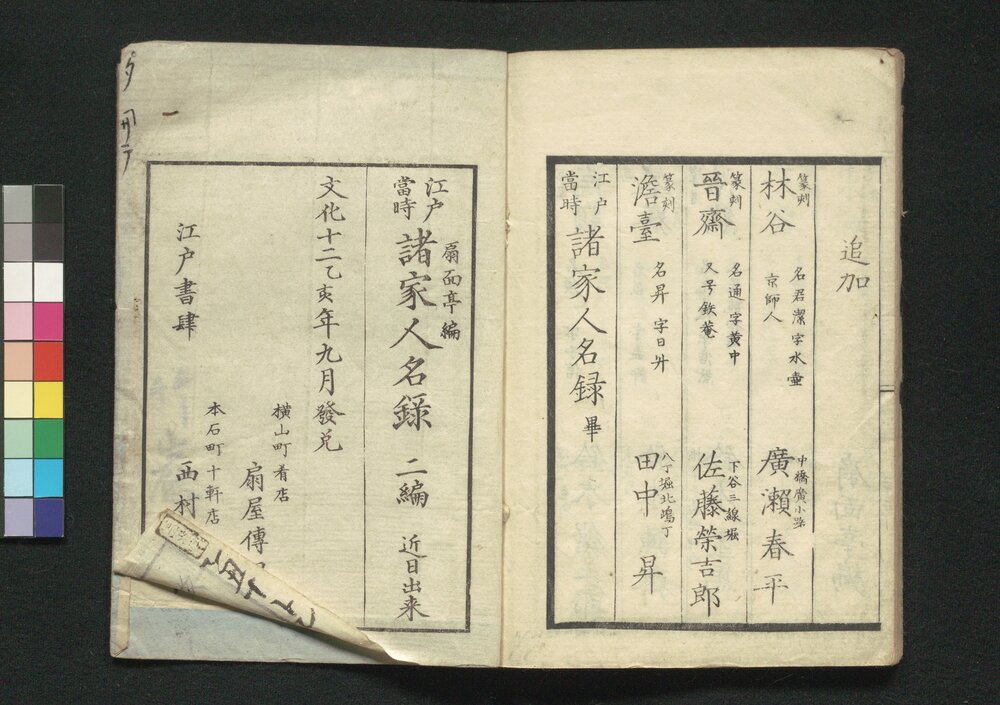 追加
篆刻
林谷
名君潔字水壷
京師人
中橋廣小路
廣瀬春平
篆刻
晉齋
名通字黄中
又号鉄菴
下谷三線堀
佐藤榮吉郎
篆刻
澹臺
名昇 字日升
八丁堀北嶋丁
田中 昇
江戸當時諸家人名録 畢
扇面亭編
江戸當時諸家人名録 二編 近日出来
文化十二乙亥年九月發兌
江戸書肆
横山町肴店
扇屋傳
本石町十軒店
西村